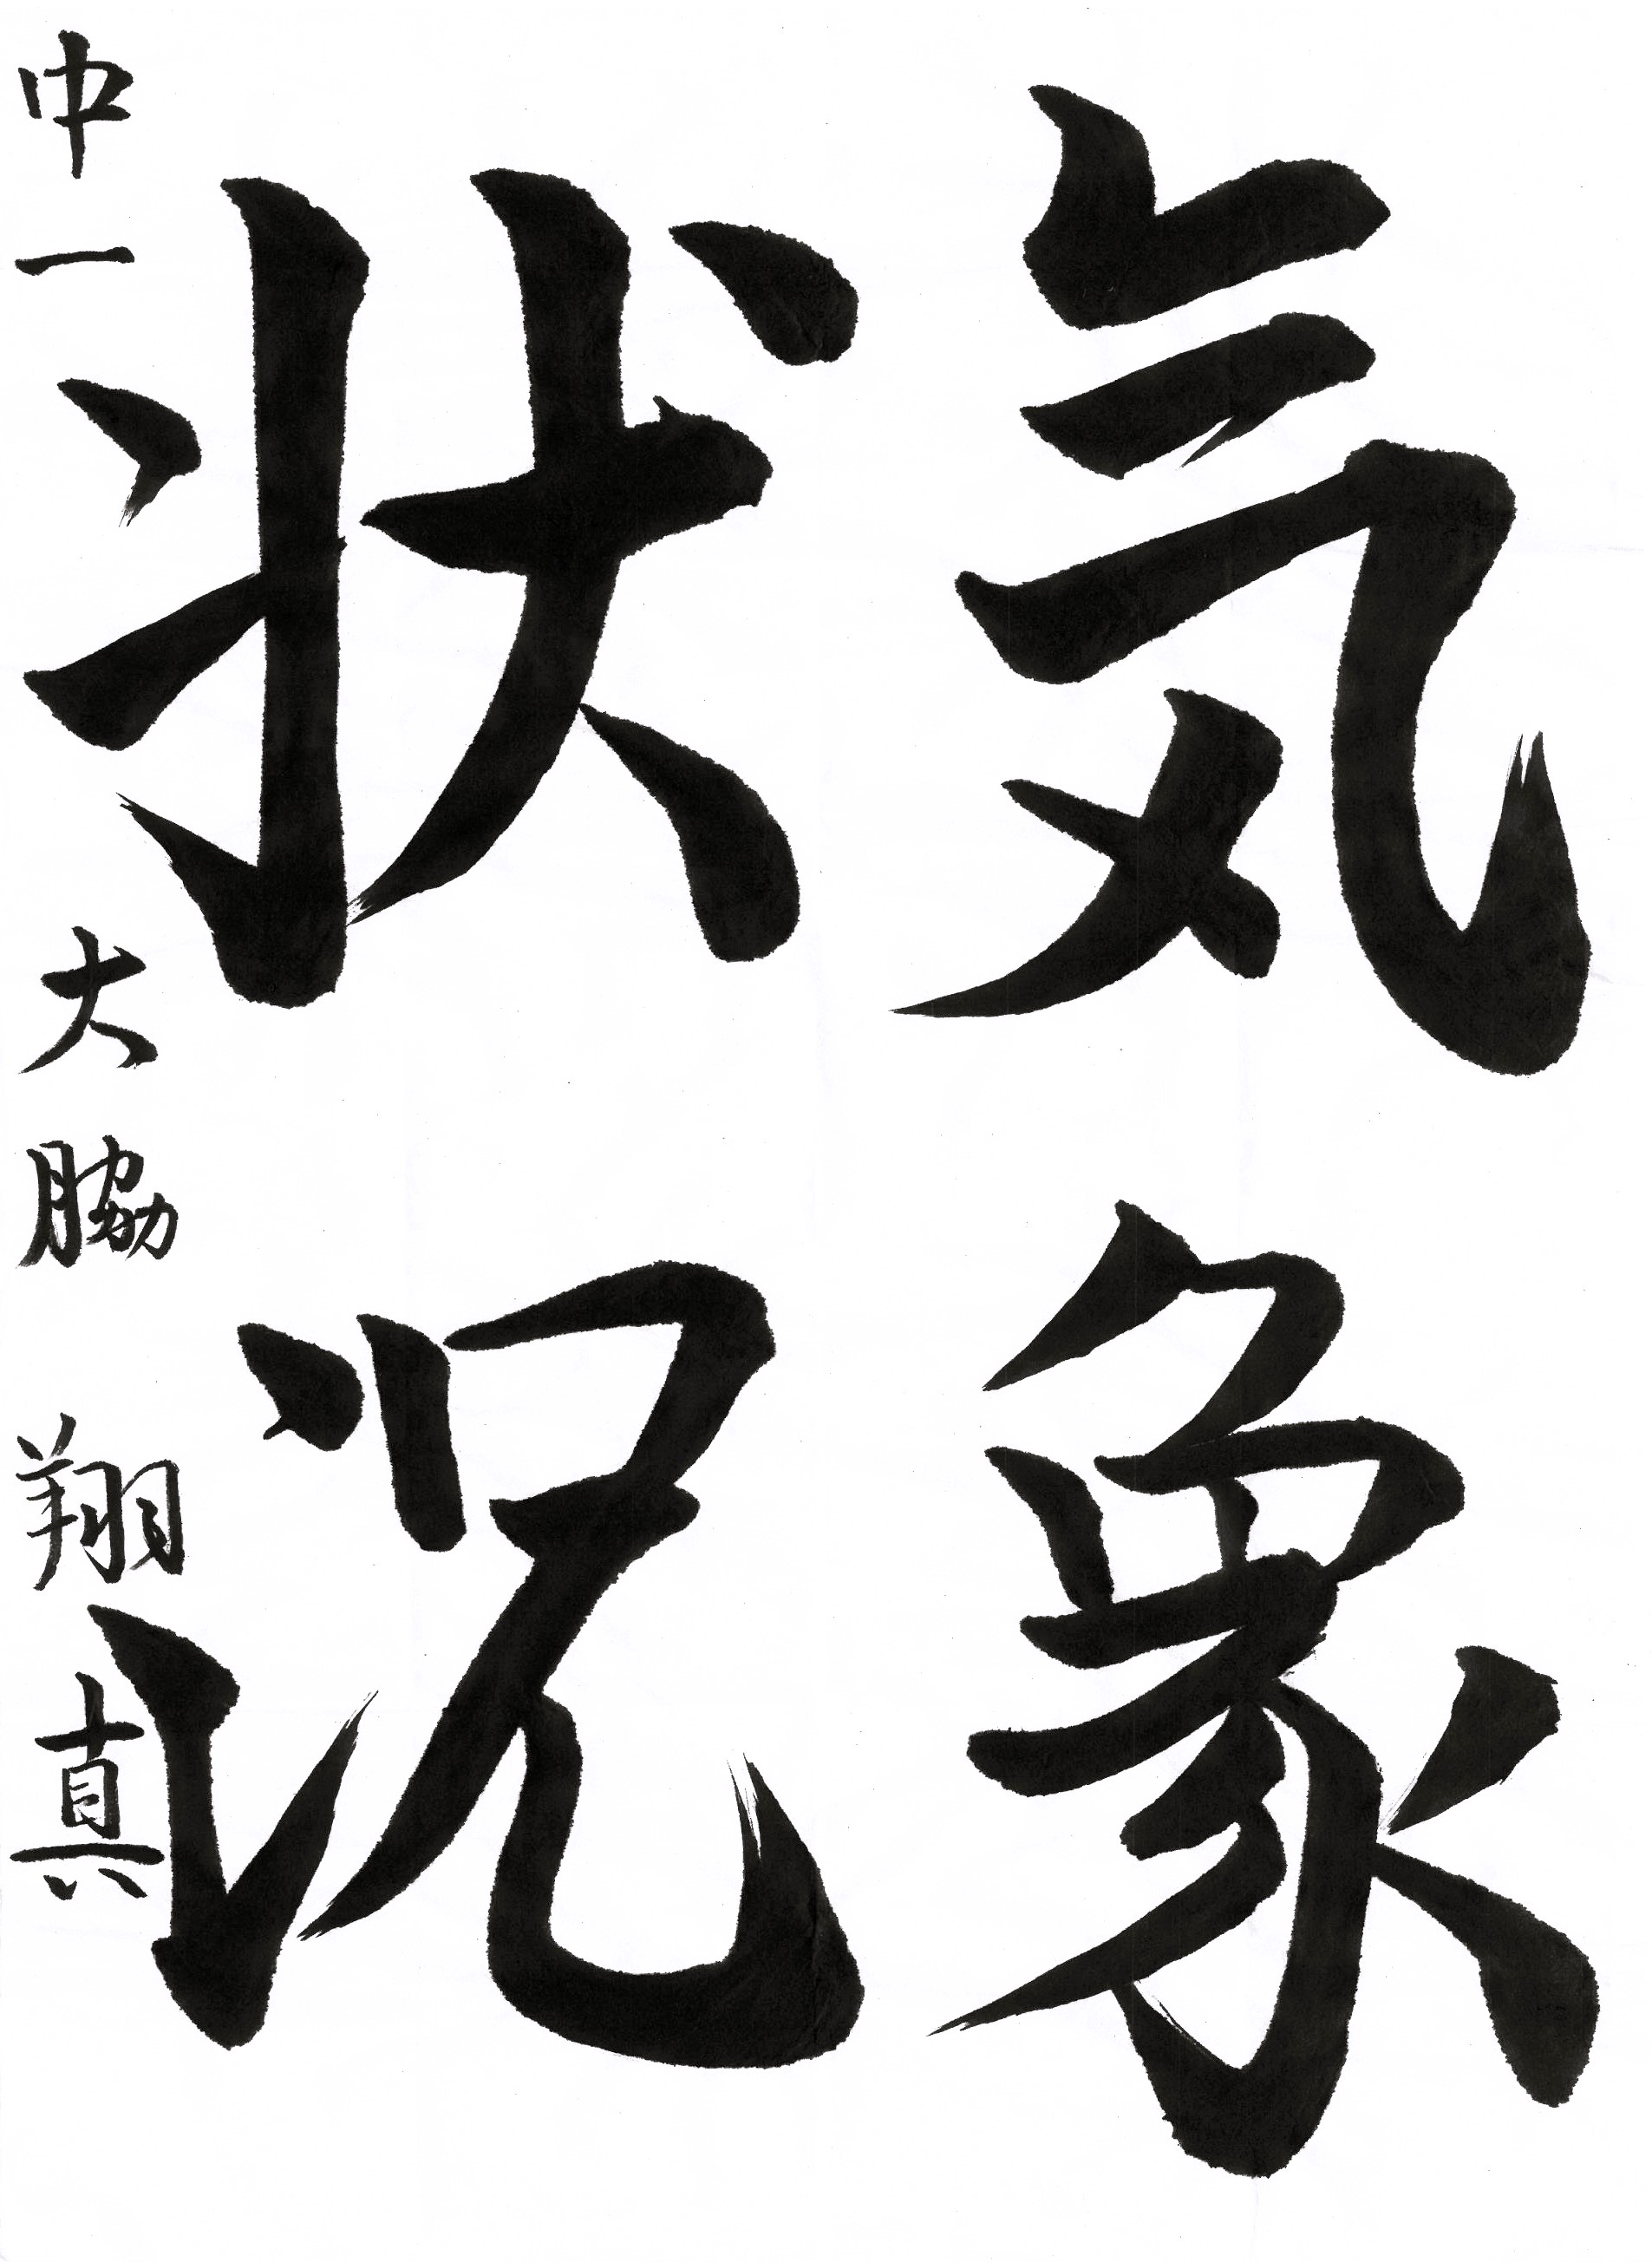 気象
状況
中一 大脇翔真